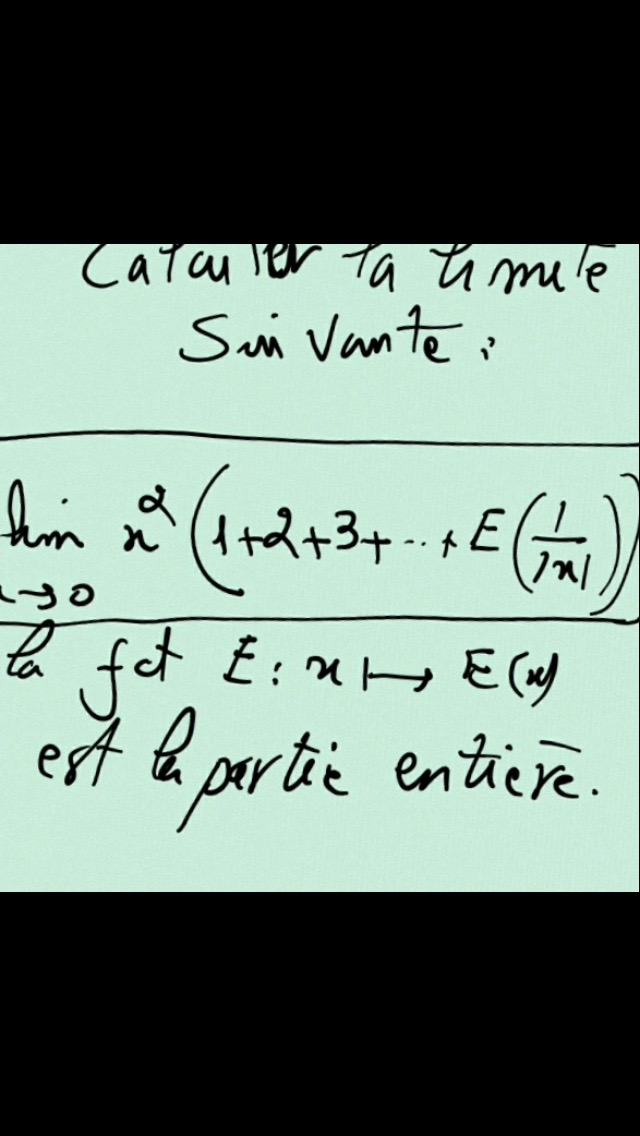 Calculer la limite
Suivante :
lim x² (1+2+3+...+ E(1/|x|))
x→0
la fct E : x ↦ E(x)
est la partie entière.